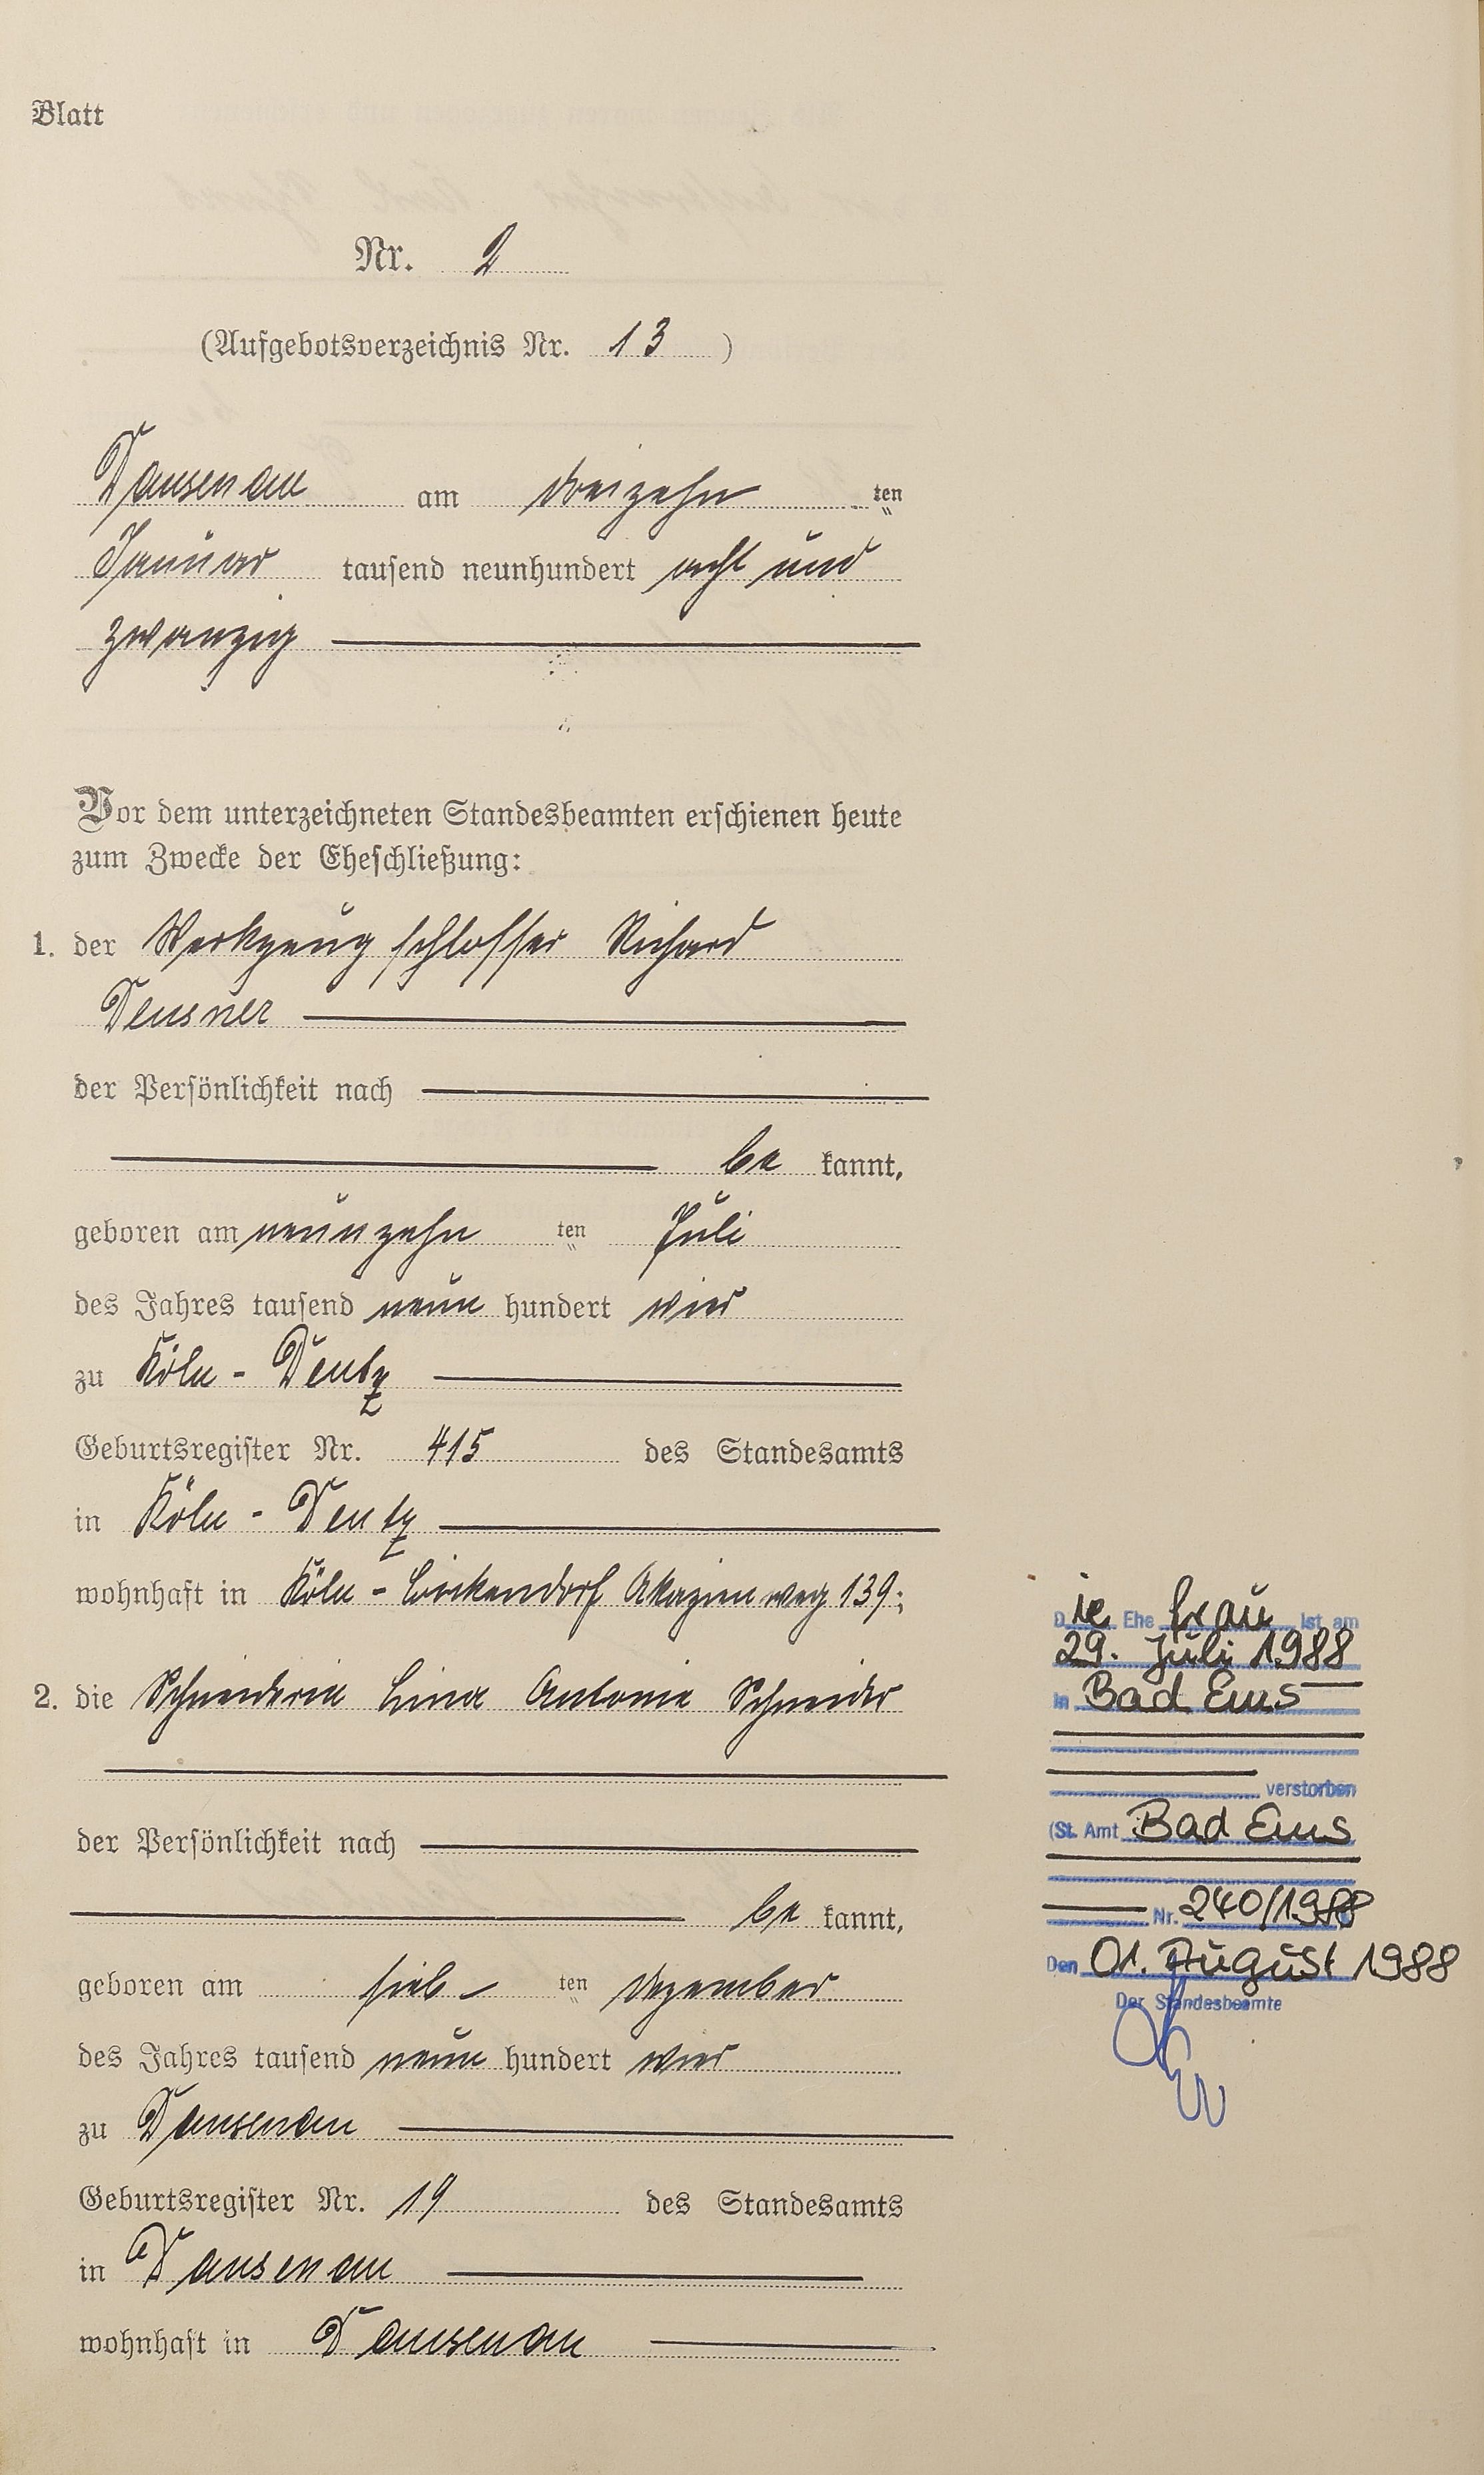 Blatt
Nr. 2
(Aufgebotsverzeichnis Nr. 13 )
Dausenau am dreizehn ten
Januar tausend neunhundert acht und
zwanzig
Vor dem unterzeichneten Standesbeamten erschienen heute
zum Zwecke der Eheschließung:
1. der Werkzeugschlosser Richard
Deusner
der Persönlichkeit nach
be kannt,
geboren am neunzehn ten Juli
des Jahres tausend neun hundert vier
zu Köln - Deutz
Geburtsregister Nr. 415 des Standesamts
in Köln - Deutz
wohnhaft in Köln - Akazienweg 139;
2. die Schneiderin Lina Antonie Schneider
der Persönlichkeit nach
be kannt,
geboren am sieb ten Dezember
des Jahres tausend neun hundert vier
zu Dausenau
Geburtsregister Nr. 19 des Standesamts
in Dausenau
wohnhaft in Dausenau
Die Ehe frau ist am
29. Juli 1988
in Bad Ems
verstorben
(St. Amt Bad Ems
Nr. 240/1988
Den 01. August 1988
Der Standesbeamte